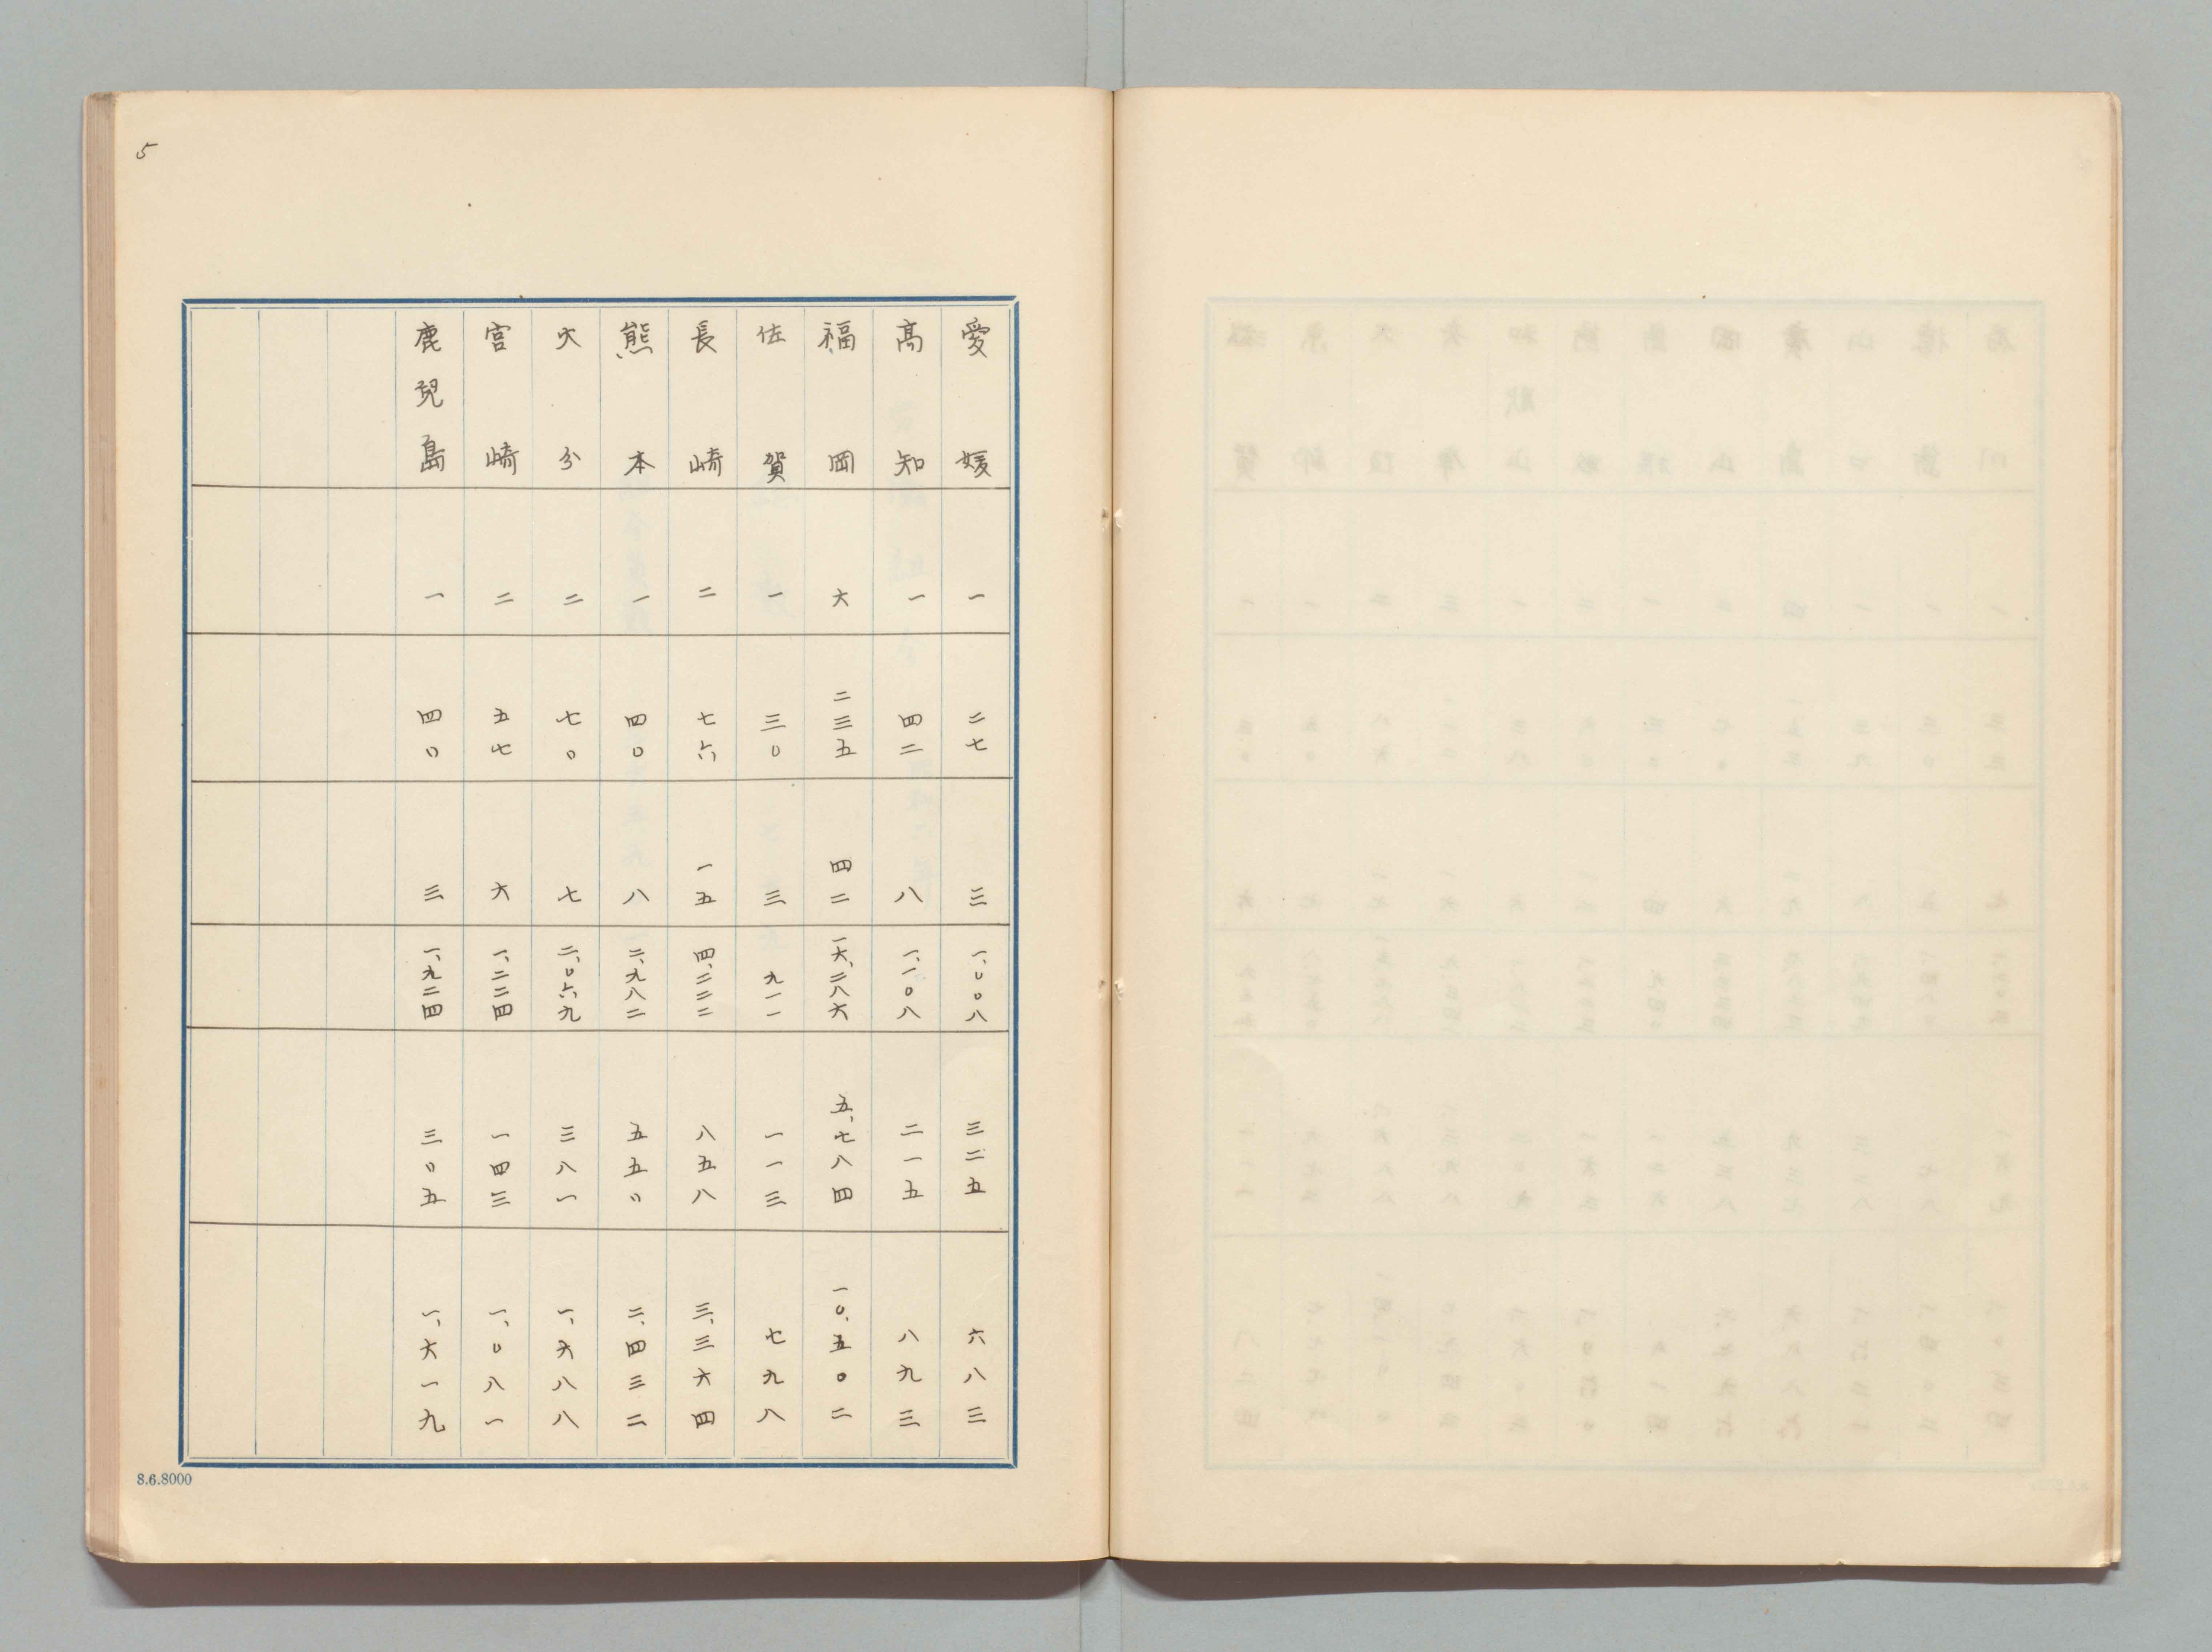 5
愛媛 一 二七 三 一、〇〇八 三二五 六八三
高知 一 四二 八 一、一〇八 二一五 八九三
福岡 六 二三五 四二 一六、二八六 五、七八四 一〇、五〇二
佐賀 一 三〇 三 九一一 一一三 七九八
長崎 二 七六 一五 四、二二二 八五八 三、三六四
熊本 一 四〇 八 二、九八二 五五〇 二、四三二
大分 二 七〇 七 二、〇六九 三八一 一、六八八
宮崎 二 五七 六 一、二二四 一四三 一、〇八一
鹿児島 一 四〇 三 一、九二四 三〇五 一、六一九
8.6.8000